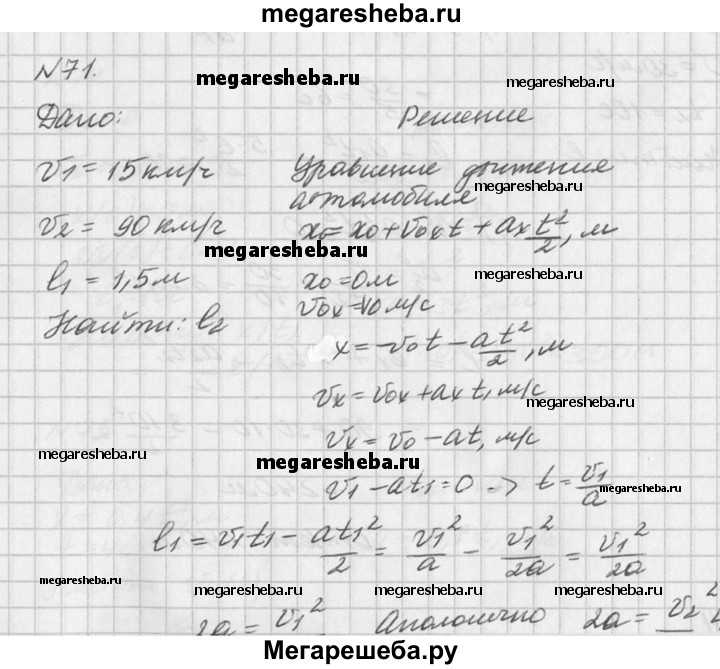 megaresheba.ru
№71.
megaresheba.ru
megaresheba.ru
Дано:
Решение
v1 = 15 км/ч
Уравнение движения
megaresheba.ru
автомобиля
v2 = 90 км/ч
x0 = x0 + v0x t + ax t²/2, м
megaresheba.ru
megaresheba.ru
l1 = 1,5 м
x0 = 0 м
Найти: l2
v0x = v0 м/с
x = v0t - at²/2, м
vx = v0x + ax t, м/с
megaresheba.ru
vx = v0 - at, м/с
megaresheba.ru
megaresheba.ru
v1 - at1 = 0 => t = v1/a
l1 = v1t1 - at1²/2 = v1²/a - v1²/2a = v1²/2a
megaresheba.ru
megaresheba.ru
megaresheba.ru
2a = v1²
Аналогично
2a = v2²
Мегарешеба.ру